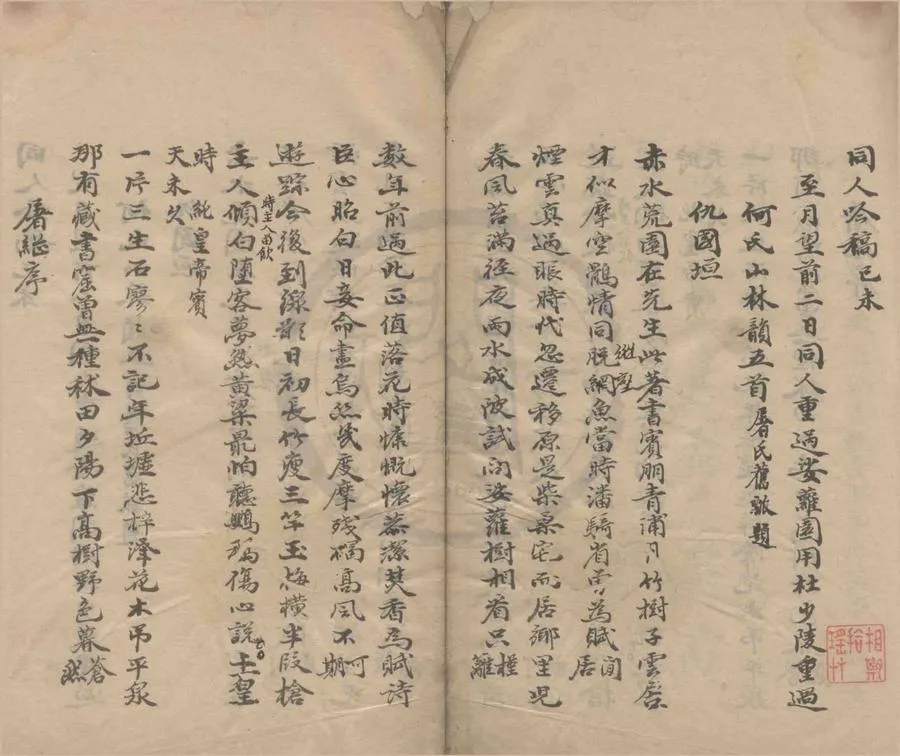 同人吟稿己未
至月望前二日同人重過娑蘿園用杜少陵重過
何氏山林韻五首屠氏舊墩題
仇國垣
赤水荒園在先生此著書賓朋青浦月竹樹子雲居
才似摩空鶻情同脫網魚當時潘騎省曾為賦閒居
煙雲真過眼時代忽遷移原是柴桑宅而居鄉里兒
春風苔滿徑夜雨水成陂試問娑蘿樹相看只槿籬
數年前過此正值落花時慷慨懷忝潔芬香為賦詩
臣心昭白日妾命盡烏絲幾度摩殘碣高風不可期
遊踪今後到線影日初長竹瘦三竿玉梅橫半段槍
主人傾白墮時主人留飲客夢熟黃粱最怕聽鸚鵡傷心說上皇
時
天未久
皇帝賓
一片三生石寥〻不記年坵墟悲梓澤花木吊平泉
那有藏書窟曾無種秫田夕陽下高樹野色暮蒼然
屠繼序